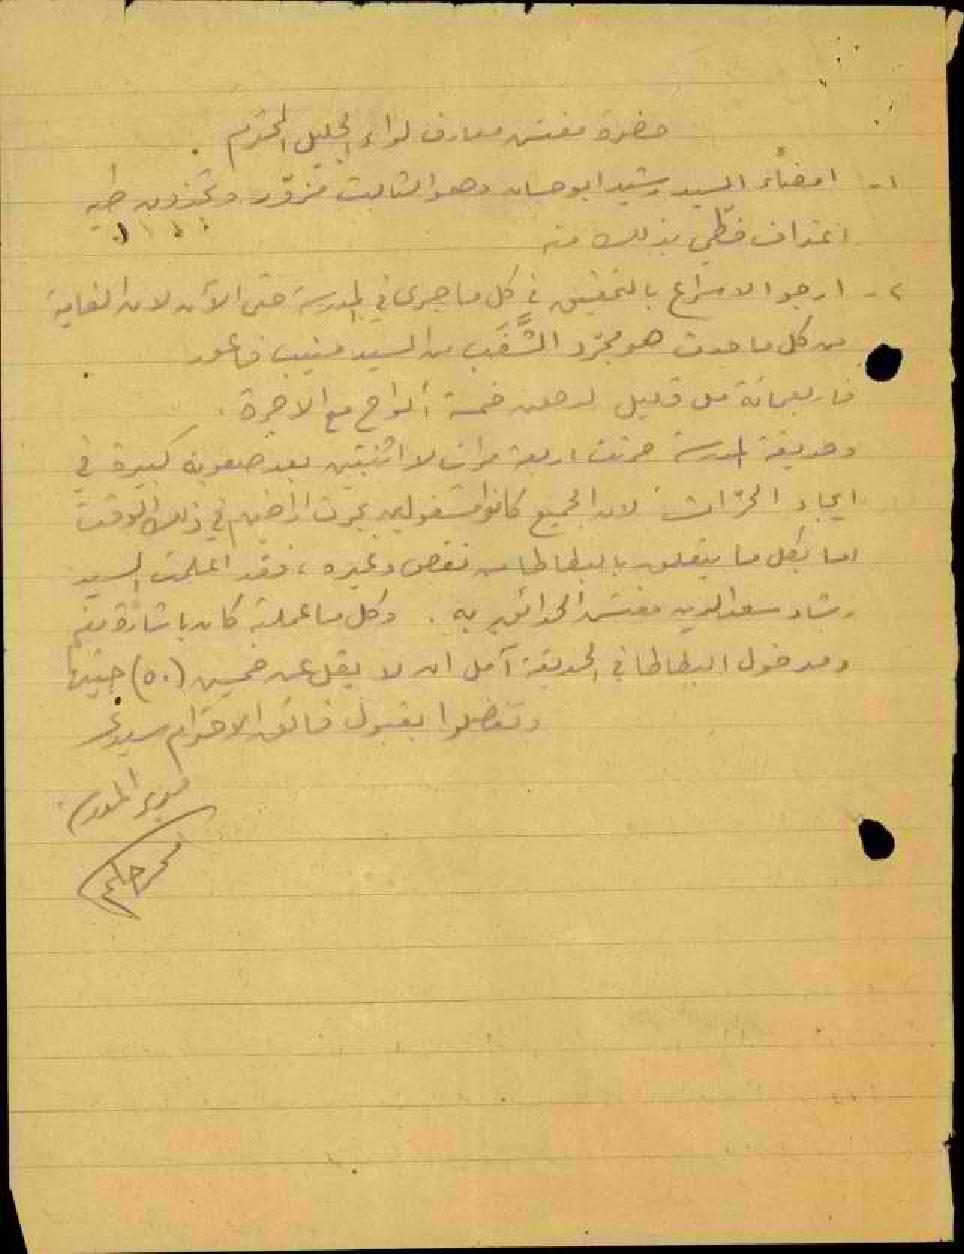 حضرة مفتش معارف لواء الجليل المحترم .
١- امضاء السيد رشيد ابو حسان وهو الثالث مزوّر وتجدون طيه
اعتراف خطّي بذلك منه
٢- ارجو الاسراع بالتحقيق في كل ما جرى في المدرسة حتى الآن لان الغاية
من كل ما حدث هو مجرّد الشَّغَب من السيد منيب فاعور
فاربعمائة مل قليل لدهن خمسة ألواح مع الاجرة .
وحديقة المدرسة حرثت اربعة مرات لا اثنتين بعد صعوبة كبيرة في
ايجاد الحرّاث لان الجميع كانوا مشغولين بحرث اراضيهم في ذلك الوقت
اما بكل ما يتعلق بالبطاطا من نقص وغيره ، فقد اعلمت السيد
رشاد سعد الدين مفتش الحدائق به . وكل ما عملته كان باشارة منه
ومدخول البطاطا في الحديقة آمل ان لا يقل عن خمسين (٥٠) جنيها
وتفضلوا بقبول فائق الاحترام سيدي
مدير المدرسة